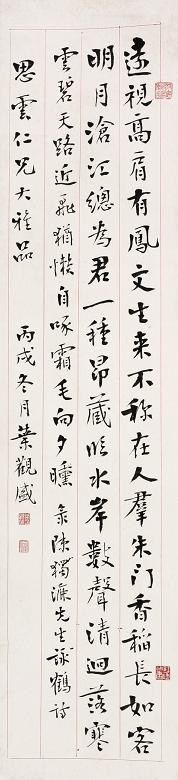 遠視高肩有鳳文生来不称在人羣朱門香稻長如客
明月滄江總為君一種昂藏臨水岸數聲清迥落寒
雲碧天路近飛猶懶自啄霜毛向夕曛 彔陳獨漉先生詠鶴詩
思雲仁兄大雅品 丙戌冬月葉觀盛